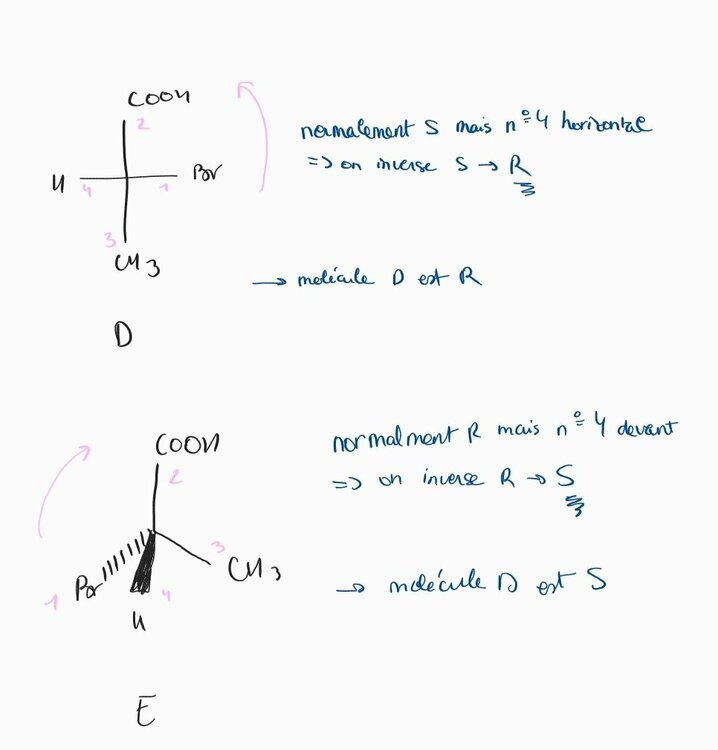 COOH
2
H
4
1
Br
3
CH3
D
normalement S mais nº4 horizontal
=> on inverse S → R
→ molécule D est R
COOH
2
3
CH3
1
Br
4
H
E
normalment R mais nº4 devant
=> on inverse R → S
→ molécule D est S